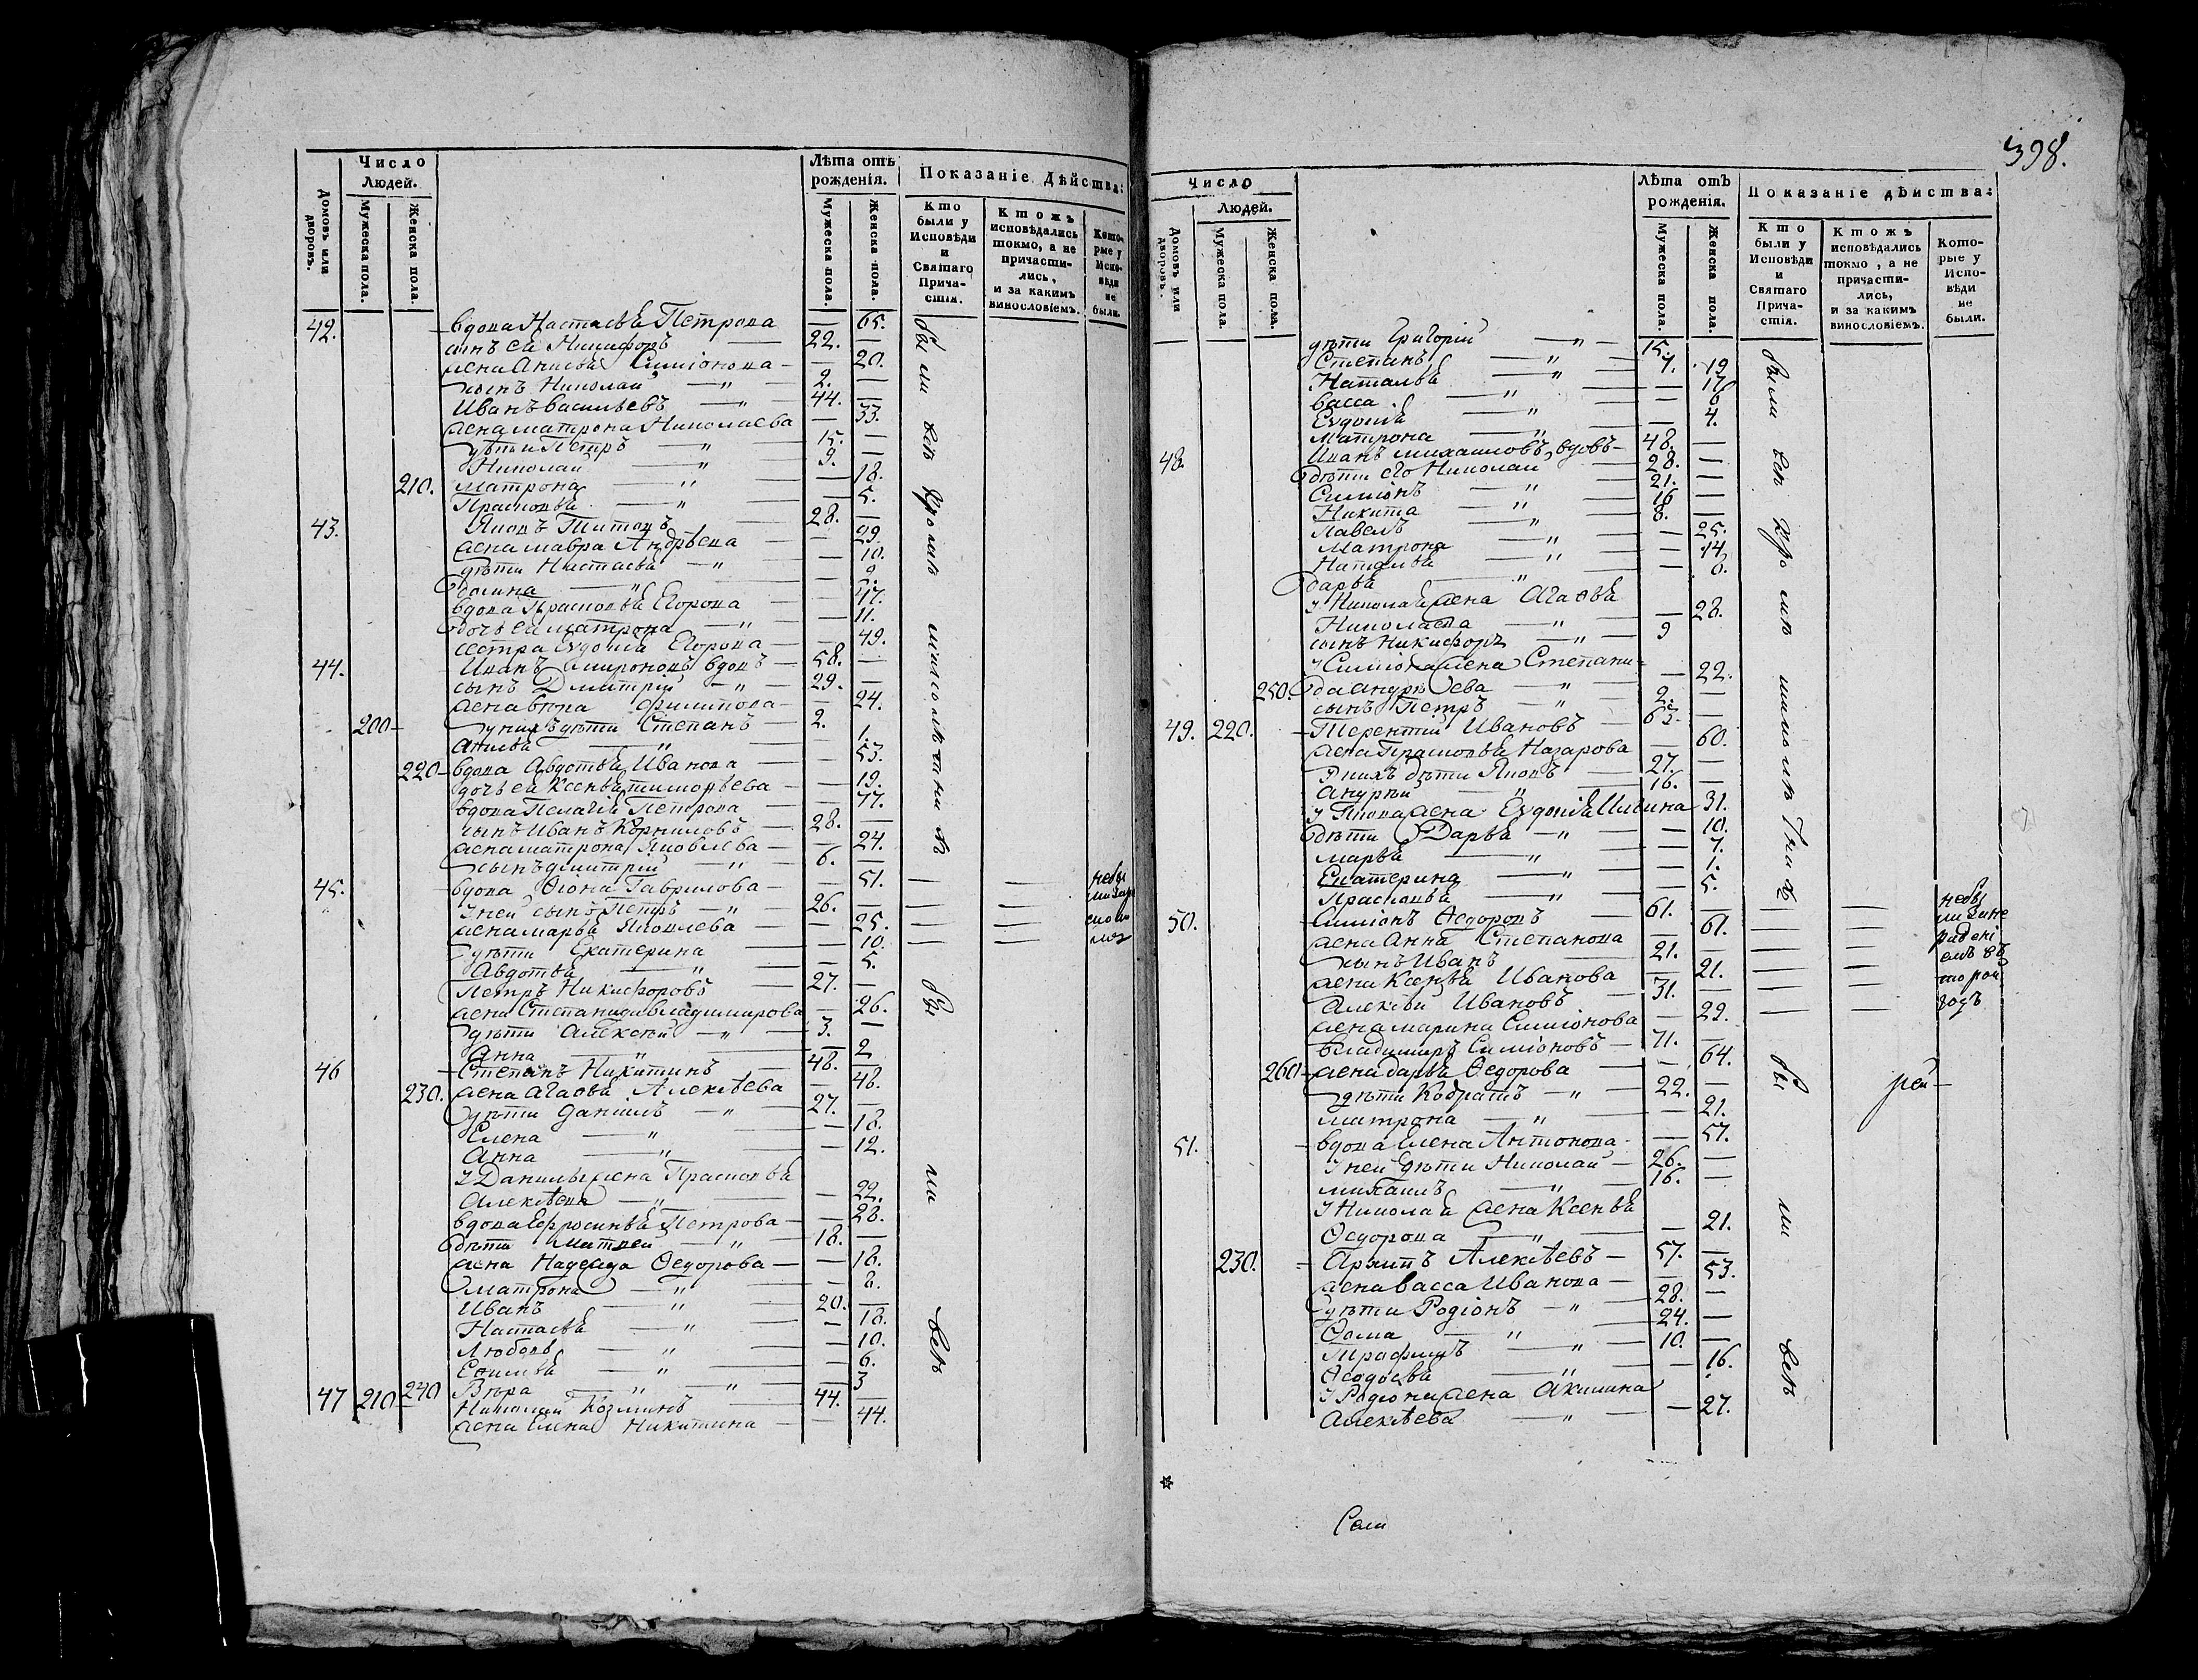 398.
Число Людей.
Домовъ или дворовъ.
Мужеска пола.
Женска пола.
Лѣта отъ рожденія.
Мужеска пола.
Женска пола.
Показаніе Дѣйства:
Кто были у Исповѣди и Святаго Причастія.
Ктожъ исповѣдались токмо, а не причастились, и за какимъ винословіемъ.
Которые у Исповѣди не были.
42. вдова Настасья Петрова — 65.
сынъ ея Никифоръ 22. —
жена Анисья Симіонова — 20.
сынъ Николай — " — 2. —
Иванъ Васильевъ — " — 44. —
жена Матрона Николаева — 33.
дѣти Петръ " 15. —
Николай " 9. —
210. Матрона " — 18.
Прасковья " — 5.
43. Яковъ Титовъ 28. —
жена Мавра Андрѣева — 29.
дѣти Настасья — " — 10.
Домна " — 9.
вдова Прасковья Егорова — 47.
дочь ея Матрона — " — 11.
сестра Евдокія Егорова — 49.
44. Иванъ Мироновъ вдовъ — 58. —
сынъ Дмитрій — " — 29. —
жена Филипова — 24.
200 у нихъ дѣти Степанъ — 2.
Анисья " 1.
220 вдова Авдотья Иванова — 53.
дочь ея Ксенья Тимофѣева — 19.
вдова Пелагія Петрова — 77.
сынъ Иванъ Корниловъ — 28. —
жена Матрона Яковлева — 24.
сынъ Дмитрій " 6. —
45. вдова Ѳіона Гаврилова — 51. — —
у ней сынъ Петръ — " — 26. — — —
жена Марья Яковлева — 25. — —
дѣти Екатерина — 10. — —
Авдотья " — 5.
Петръ Никифоровъ 27. —
жена Степанида Владимирова — 26.
дѣти Алексѣй — " — 3. —
Анна " — 2
46 Степанъ Никитинъ 48. —
230. жена Агаѳья Алексѣева — 48.
дѣти Данилъ — " — 27. —
Елена — " — 18.
Анна — " — 12.
у Данилы жена Прасковья
Алексѣева — " — 22.
вдова Ефросинья Петрова — 28.
дѣти Матвей — " — 18. —
жена Надежда Ѳедорова — 18.
Матрона — " — 8.
Иванъ " 20. —
Настасья — " — 18.
Любовь " — 10.
" — 6.
240 Вѣра " — " — 3
47 210 Николай Козминъ 44. —
жена Елена Никитина — 44.
были всѣ кромѣ малолѣтнихъ
бы
ли
всѣ
небы
Число Людей.
Домовъ или дворовъ.
Мужеска пола.
Женска пола.
Лѣта отъ рожденія.
Мужеска пола.
Женска пола.
Показаніе дѣйства:
Кто были у Исповѣди и Святаго Причастія.
Ктожъ исповѣдались токмо, а не причастились, и за какимъ винословіемъ.
Которые у Исповѣди не были.
дѣти Григорій — " — 15.
Степанъ — " — 7.
Наталья — " — 19
Васса — " — 17
Евдокія — " — 6
Матрона — " — 4.
48. Иванъ Михаиловъ, вдовъ — 48. —
дѣти его Николай 28. —
Симіонъ — " — 21. —
Никита — " — 16 —
Павелъ " 8. —
Матрона — " — 25.
Наталья — " — 14.
Дарья " — 6.
у Николая жена Агаѳья
Николаева — " — 28.
сынъ Никифоръ — " — 9
у Симіона жена Степани-
250. да Андрѣева — " — 22.
сынъ Петръ — " — 2. —
49. 220. Терентій Ивановъ 63. —
жена Прасковья Назарова — 60.
у нихъ дѣти Яковъ — 27. —
Андрѣй " 16. —
у Якова жена Евдокія Ильина 31.
дѣти Дарья — " — 10.
Марья — " — 7.
Екатерина — " — 1.
Прасковья — " — 5.
50. Симіонъ Ѳедоровъ — 61. — — —
жена Анна Степанова — 61. — —
сынъ Иванъ 21. — — —
жена Ксенья Иванова — 21. — —
Алексѣй Ивановъ — 31. — — —
жена Марина Симіонова — 29. — —
Владимиръ Симіоновъ — 71. —
260 жена Дарья Ѳедорова — 64.
дѣти Кодратъ — " — 22. —
Матрона — " — 21.
51. вдова Елена Антонова — 57.
у ней дѣти Николай — 26. —
Михаилъ — " — 16. —
у Николая жена Ксенья
Ѳедорова — " — 21.
230. Архипъ Алексѣевъ — 57. —
жена Васса Иванова — 53.
дѣти Родіонъ — " — 28. —
Ѳома — " — 24. —
Трофимъ — " — 10. —
Ѳеодосья " — 16.
у Родіона жена Акилина
Алексѣева — " — 27.
были всѣ кромѣ малолѣтнихъ
небы
ли за не
радені
емъ въ
торой
годъ
бы
ли
всѣ